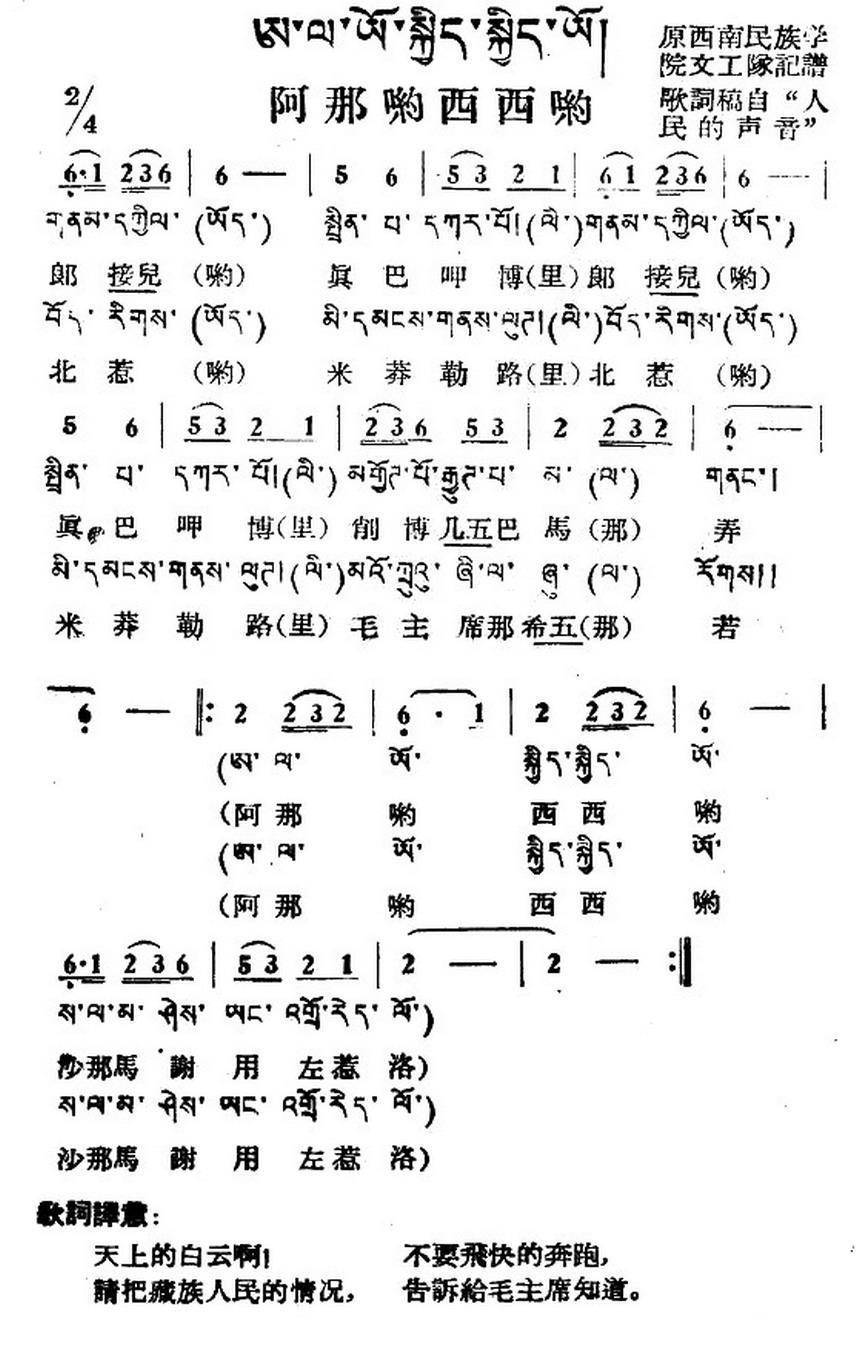 ཨ་ལ་ཡོ་སྐྱིད་སྐྱིད་ཡོ།
原西南民族学
院文工隊記譜
2/4
阿那喲西西喲
歌詞稿自“人
民的声音”
6·1 236 | 6 — | 5 6 | 53 2 1 | 61 236 | 6 — |
གནམ་དཀྱིལ་(ཡོད་) སྤྲིན་པ་དཀར་པོ།(ལེ་)གནམ་དཀྱིལ་(ཡོད་)
郞接兒(喲) 眞巴呷博(里)郞接兒(喲)
བོད་རིགས་(ཡོད་) མི་དམངས་གནས་ལུད།(ལེ་)བོད་རིགས་(ཡོད་)
北惹(喲) 米莽勒路(里)北惹(喲)
5 6 | 53 2 1 | 236 53 | 2 232 | 6 — |
སྤྲིན་པ་དཀར་པོ།(ལེ་)མགྱོད་པོ་རྒྱུད་པ་མ་(ལ་)གནང་།
眞巴呷博(里)削博几五巴馬(那)弄
མི་དམངས་གནས་ལུད།(ལེ་)མའོ་ཀྲུའུ་ཞི་ལ་ཞུ་(ལ་)རོགས།།
米莽勒路(里)毛主席那希五(那)若
6 — |: 2 232 | 6 · 1 | 2 232 | 6 — |
(ཨ་ལ་ཡོ་སྐྱིད་སྐྱིད་ཡོ་
(阿那喲西西喲
(ཨ་ལ་ཡོ་སྐྱིད་སྐྱིད་ཡོ་
(阿那喲西西喲
6·1 236 | 53 2 1 | 2 — | 2 — :|
ས་ལ་མ་ཤེས་ཡང་འགྲོ་རེད་ལོ་)
沙那馬謝用左惹洛)
ས་ལ་མ་ཤེས་ཡང་འགྲོ་རེད་ལོ་)
沙那馬謝用左惹洛)
歌詞譯意:
天上的白云啊! 不要飛快的奔跑,
請把藏族人民的情况, 告訴給毛主席知道。